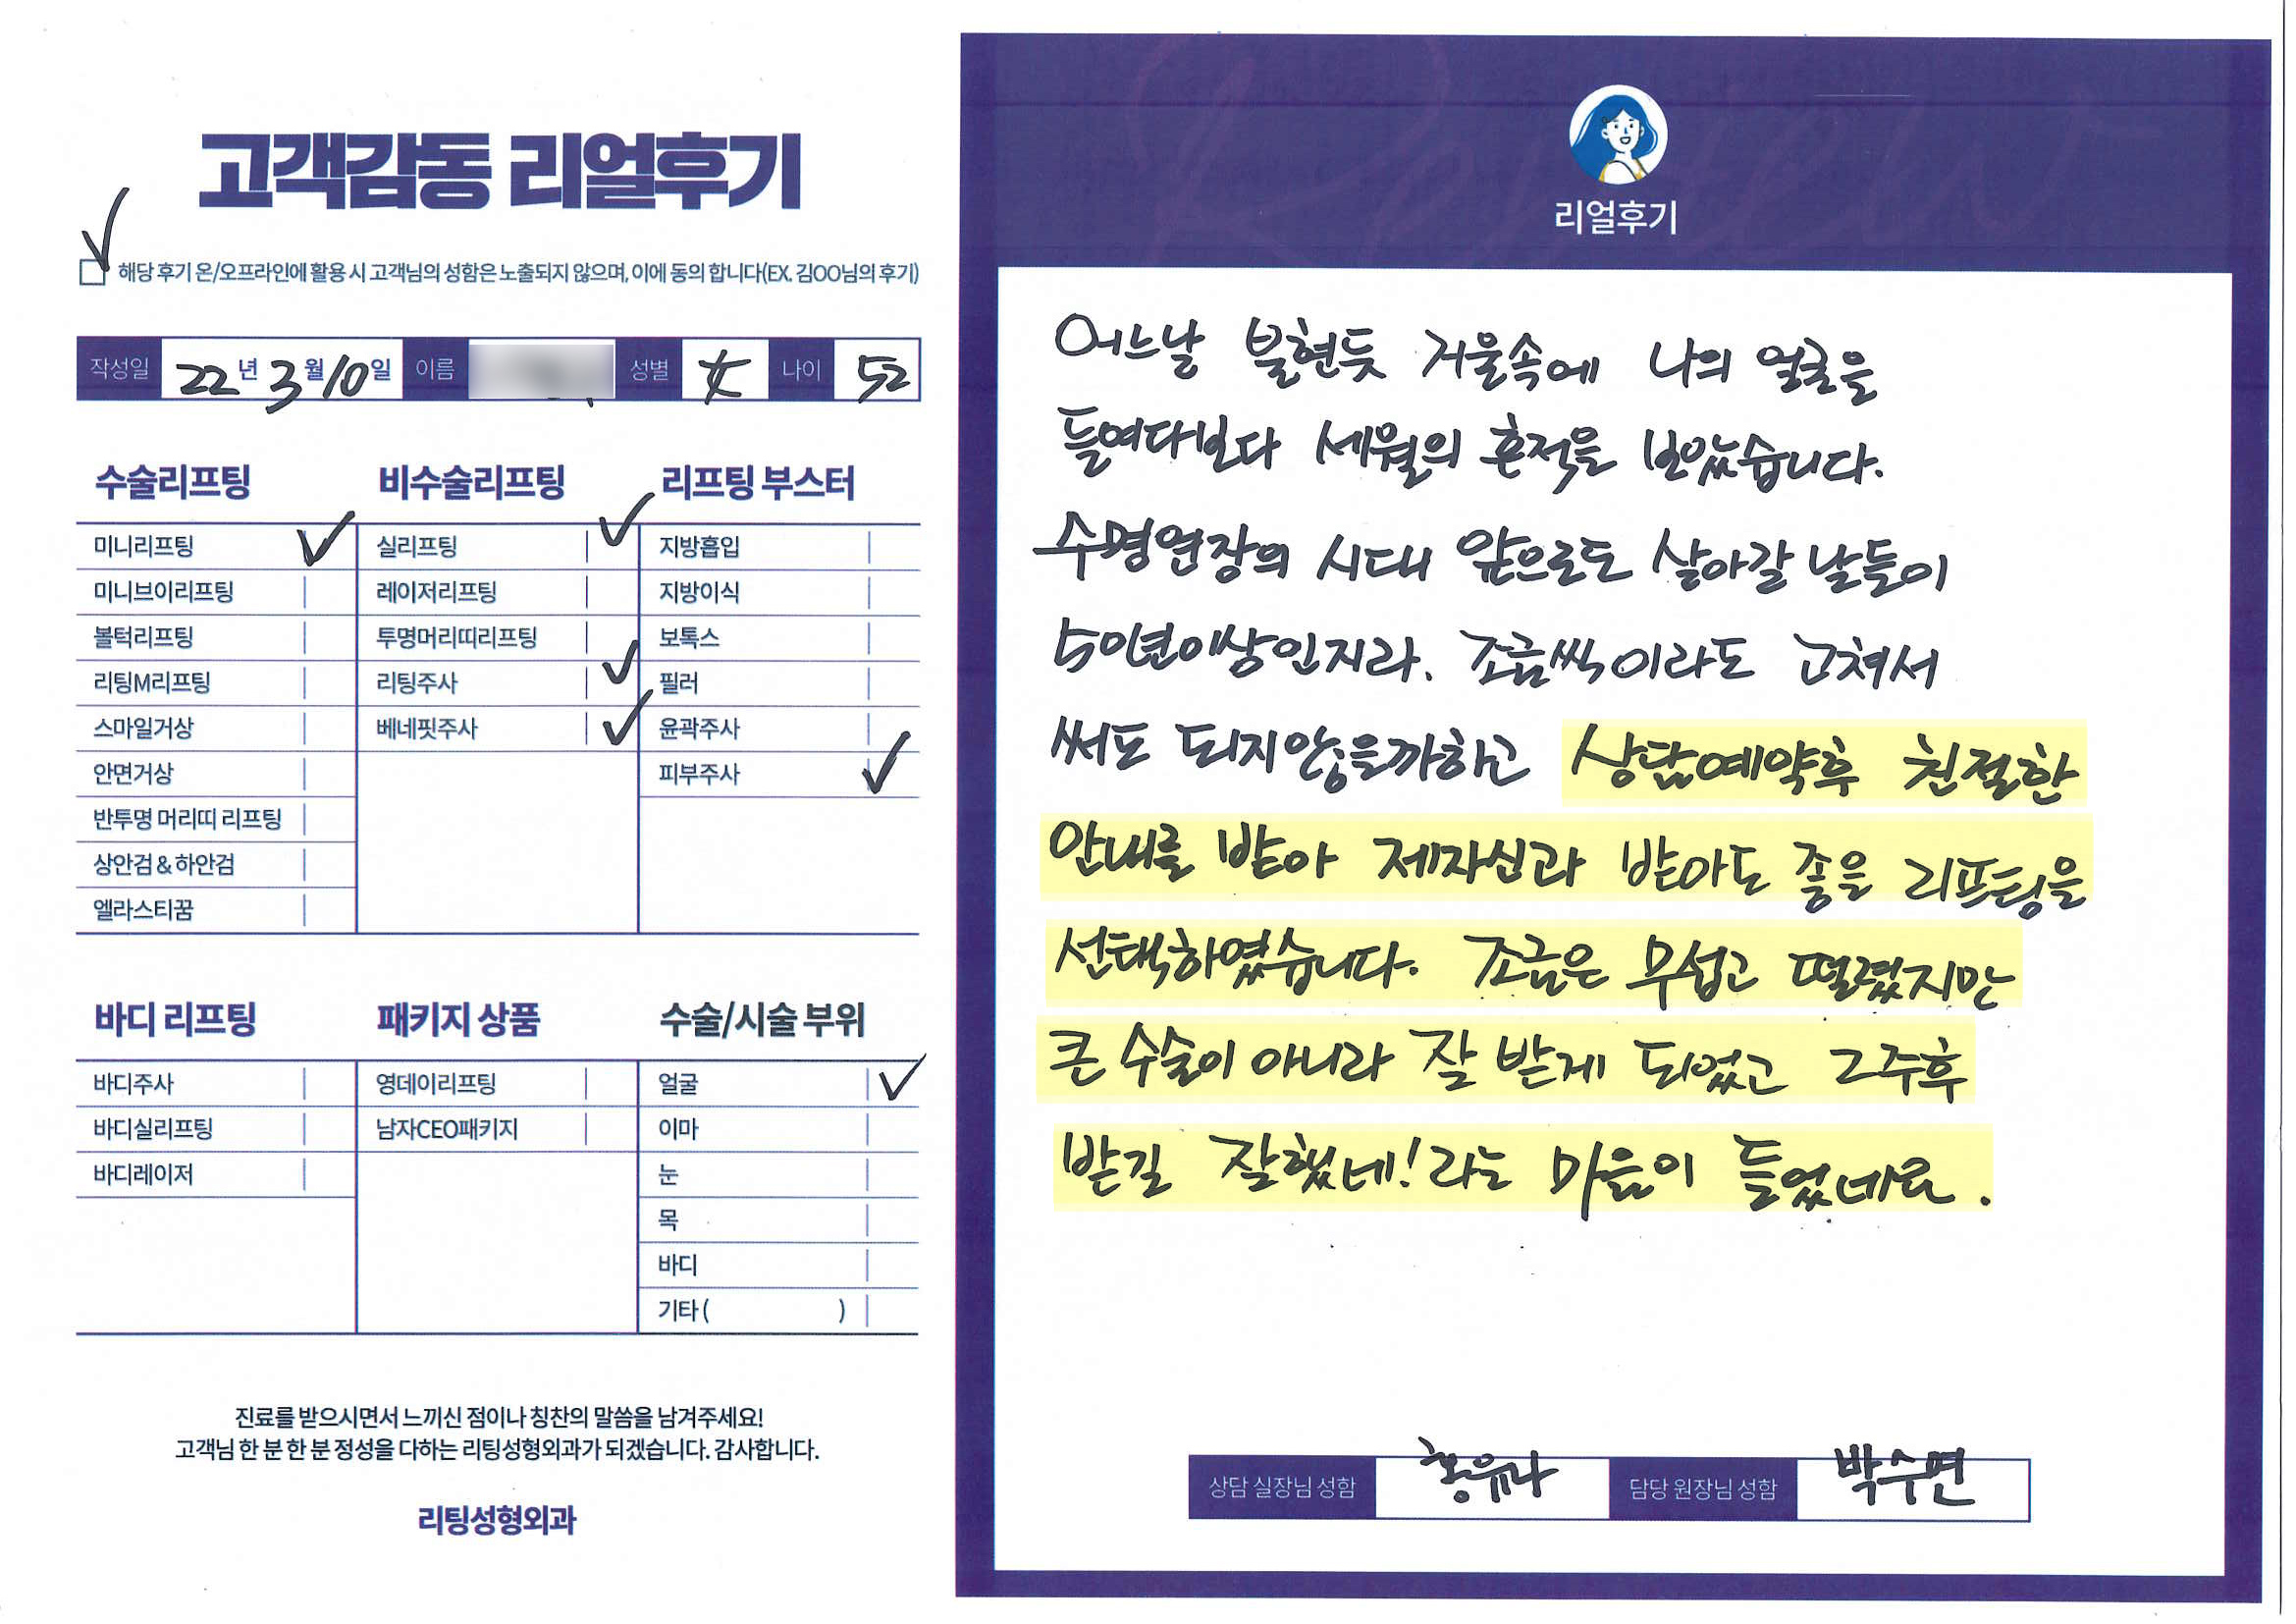 고객감동 리얼후기
해당 후기 온/오프라인에 활용 시 고객님의 성함은 노출되지 않으며, 이에 동의 합니다(EX. 김OO님의 후기)
작성일 22년 3월 10일 이름 성별 女 나이 52
수술리프팅 비수술리프팅 리프팅 부스터
미니리프팅 실리프팅 지방흡입
미니브이리프팅 레이저리프팅 지방이식
볼턱리프팅 투명머리띠리프팅 보톡스
리팅M리프팅 리팅주사 필러
스마일거상 베네핏주사 윤곽주사
안면거상 피부주사
반투명 머리띠 리프팅
상안검 & 하안검
엘라스티꿈
바디 리프팅 패키지 상품 수술/시술 부위
바디주사 영데이리프팅 얼굴
바디실리프팅 남자CEO패키지 이마
바디레이저 눈
목
바디
기타 ( )
진료를 받으시면서 느끼신 점이나 칭찬의 말씀을 남겨주세요!
고객님 한 분 한 분 정성을 다하는 리팅성형외과가 되겠습니다. 감사합니다.
리팅성형외과
리얼후기
어느날 불현듯 거울속에 나의 얼굴을
들여다보다 세월의 흔적을 보았습니다.
수명연장의 시대 앞으로도 살아갈 날들이
50년이상인지라. 조금씩이라도 고쳐서
써도 되지않을까하고 상담예약후 친절한
안내를 받아 제자신과 받아도 좋을 리프팅을
선택하였습니다. 조금은 무섭고 떨렸지만
큰 수술이 아니라 잘 받게 되었고 그주후
받길 잘했네! 라는 마음이 들었네요.
상담 실장님 성함 홍유나 담당 원장님 성함 박수면